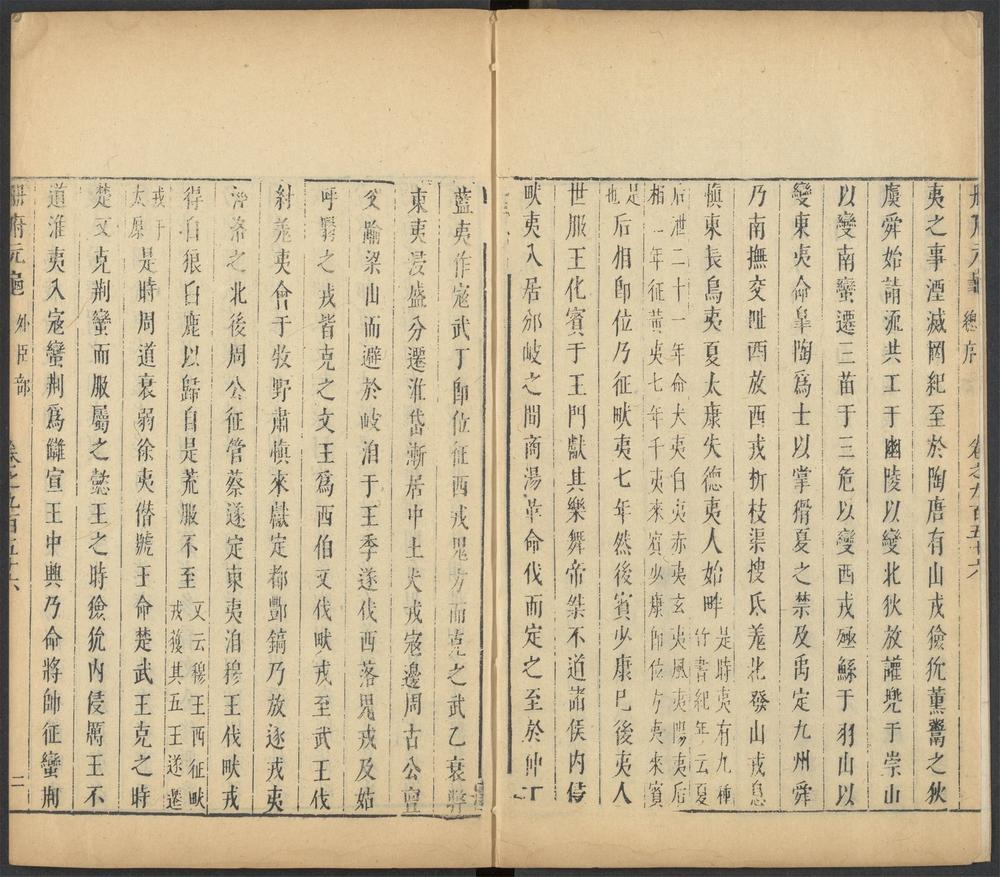 冊府元龜 總序 卷之九百五十六
夷之事湮滅罔紀至於陶唐有山戎獫狁薫鬻之狄
虞舜始請流共工于幽陵以變北狄放讙兜于崇山
以變南蠻遷三苗于三危以變西戎殛鯀于羽山以
變東夷命皐陶爲士以掌猾夏之禁及禹定九州舜
乃南撫交阯西放西戎析枝渠搜氐羗北發山戎息
愼東長鳥夷夏太康失德夷人始畔是時夷有九種竹書紀年云夏
后泄二十一年命犬夷白夷赤夷玄夷風夷陽夷后
相一年征黄夷七年千夷來賓少康卽位方夷來賓
是也后相卽位乃征畎夷七年然後賓少康巳後夷人
世服王化賓于王門獻其樂舞帝桀不道諸侯内侵
畎夷入居邠岐之間商湯革命伐而定之至於仲丁
藍夷作寇武丁卽位征西戎鬼方而克之武乙衰弊
東夷浸盛分遷淮岱漸居中土犬戎寇邊周古公亶
父踰梁山而避於岐洎于王季遂伐西落鬼戎及始
呼翳之戎皆克之文王爲西伯又伐畎戎至武王伐
紂羗夷會于牧野肅愼來獻定都酆鎬乃放逐戎夷
涇洛之北後周公征管蔡遂定東夷洎穆王伐畎戎
得白狼白鹿以歸自是荒服不至又云穆王西征畎戎獲其五王遂遷
戎于太原是時周道衰弱徐夷僭號王命楚武王克之時
楚文克荆蠻而服屬之懿王之時獫狁内侵厲王不
道淮夷入寇蠻荆爲讎宣王中興乃命將帥征蠻荆
冊府元龜 外臣部 卷之九百五十六 二